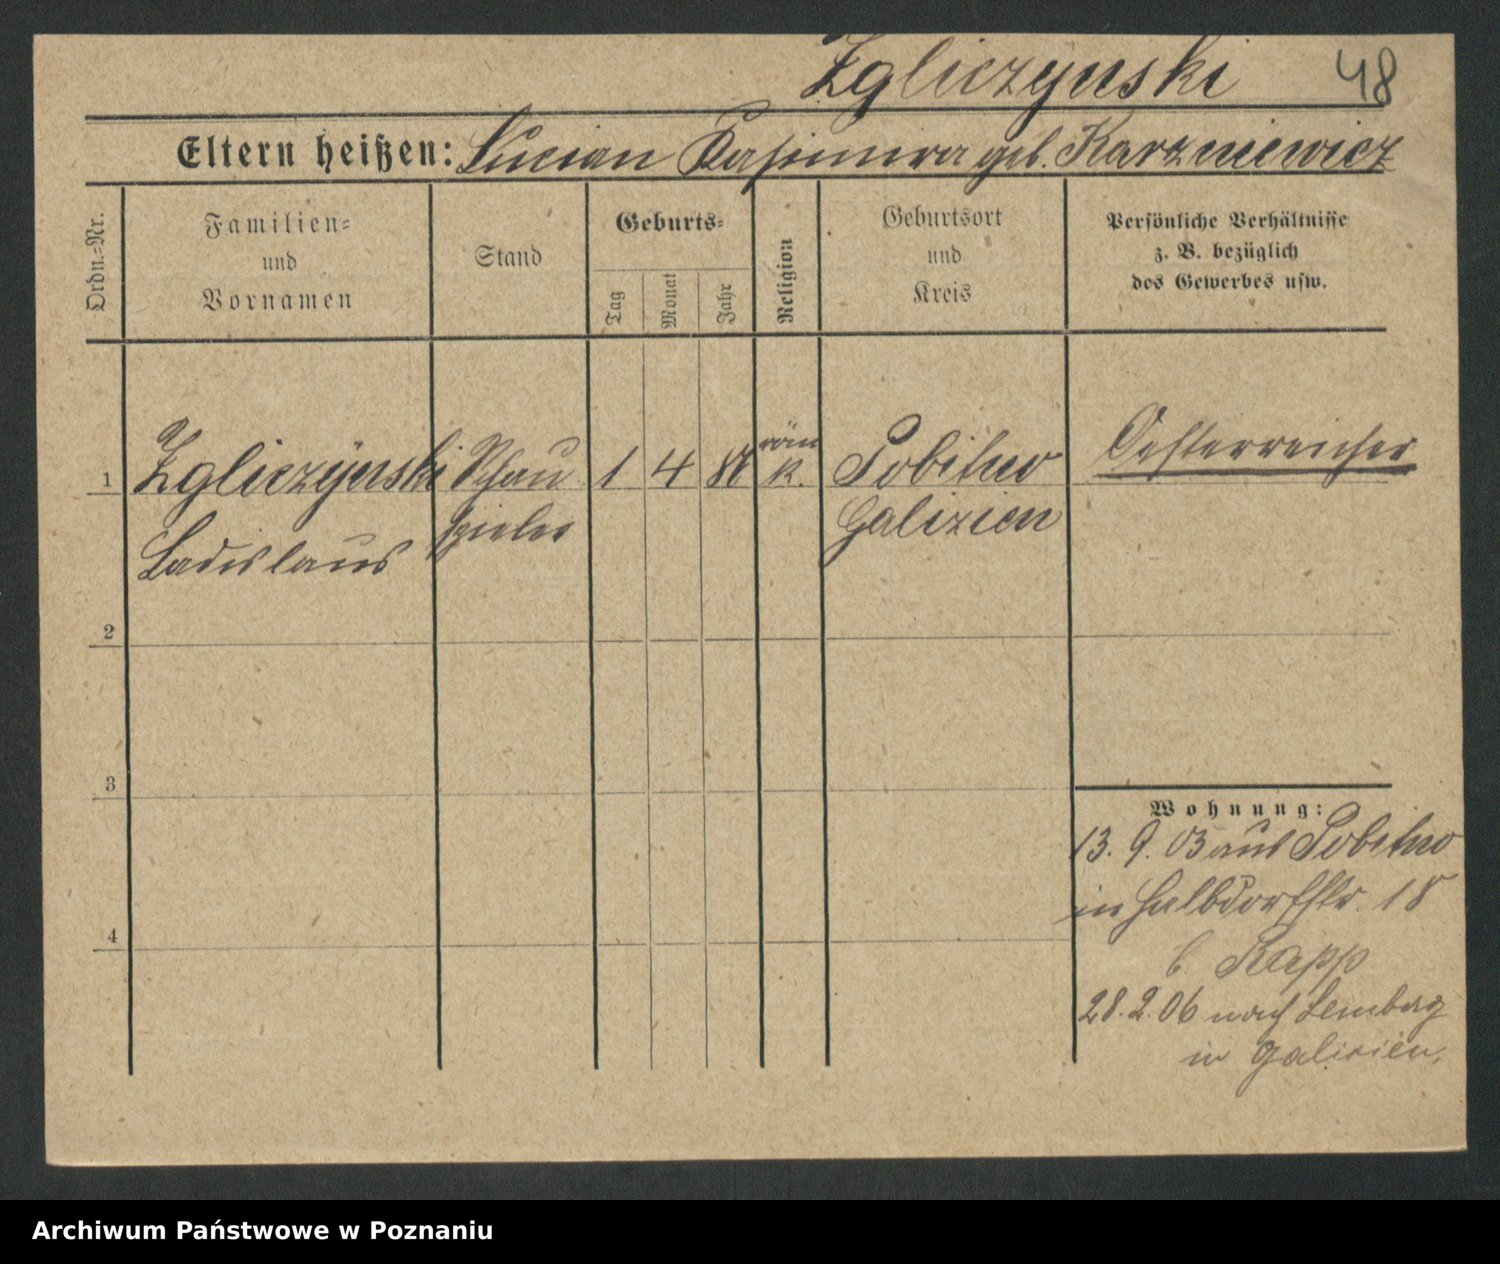 Zgliczynski 48
Eltern heißen: Lucian Kasimira geb. Karzniewicz
Ordn.-Nr.
Familien-
und
Vornamen
Stand
Geburts-
Tag
Monat
Jahr
Religion
Geburtsort
und
Kreis
Persönliche Verhältnisse
z. B. bezüglich
des Gewerbes usw.
1 Zgliczÿnski Schau 1 4 röm Pobitno Oesterreicher
k.
Ladislaus spieler Galizien
2
3
4
Wohnung:
13. 9. 03 aus Pobitno
in Halbdorfstr. 18
b. Rapp
28. 2. 06 nach Lemberg
in Galizien,
Archiwum Państwowe w Poznaniu